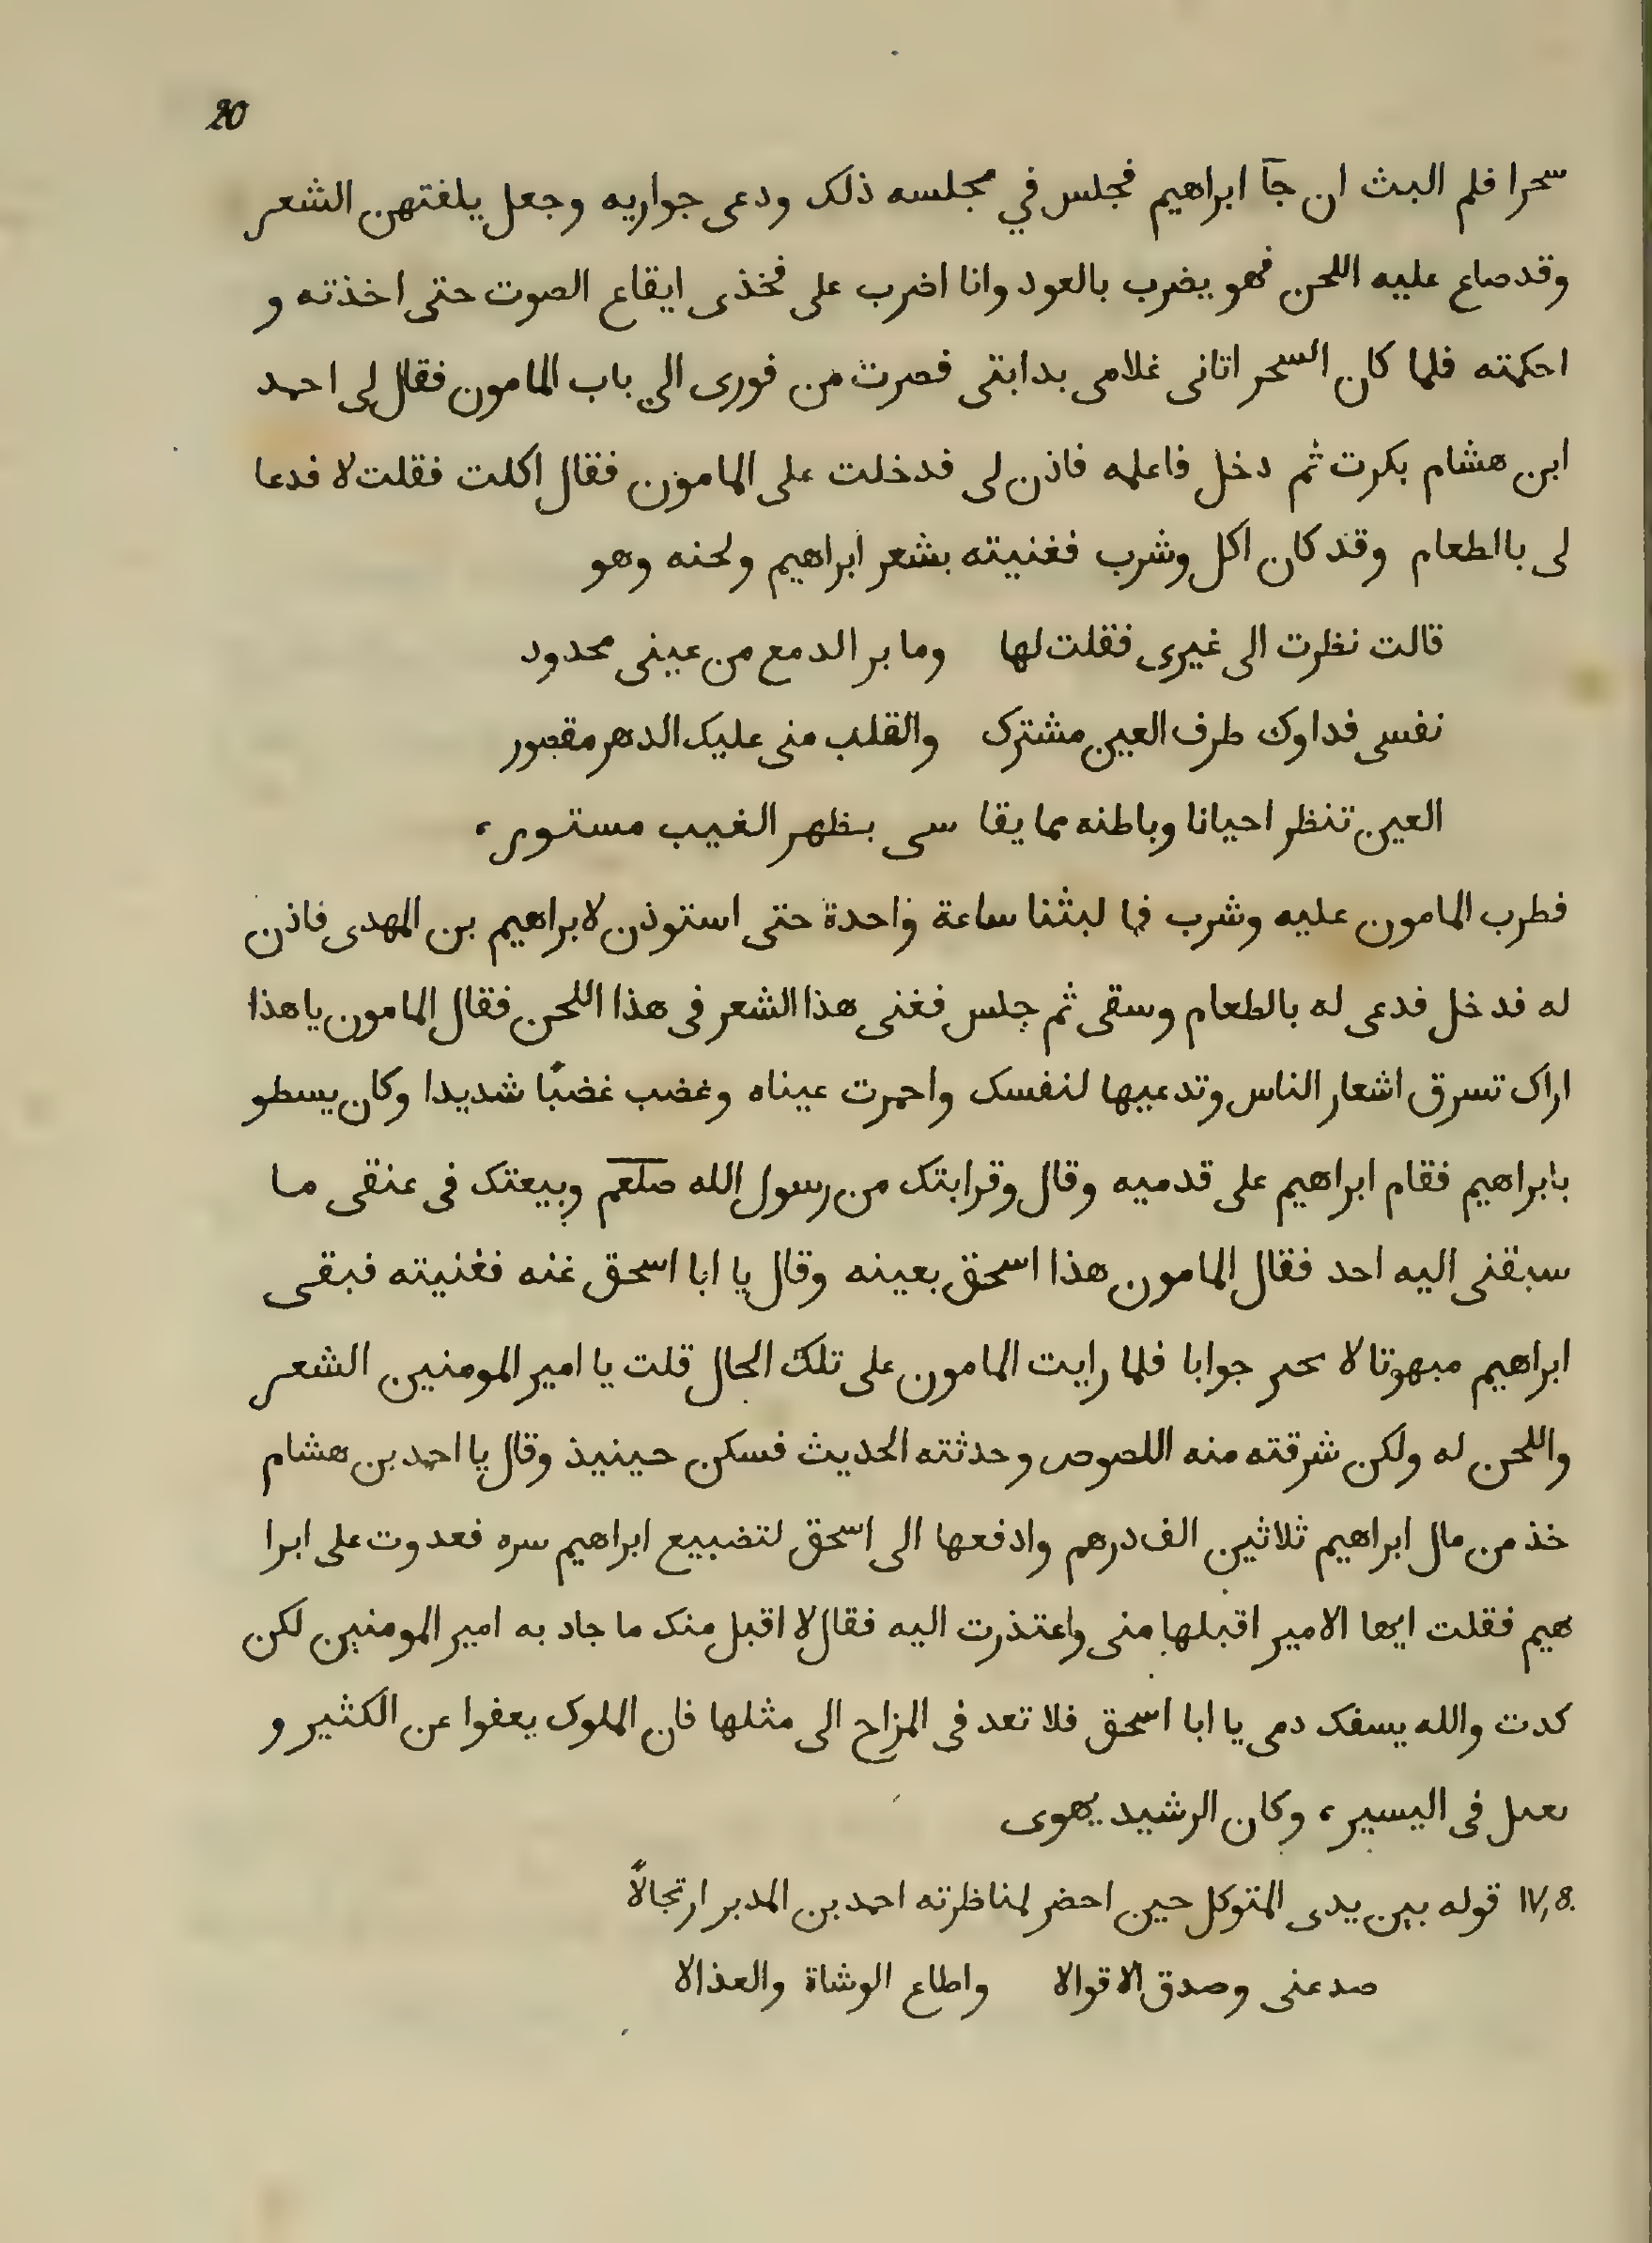 20
سحرا فلم البث ان جآ ابراهيم فجلس في مجلسه ذلك ودعى جواريه وجعل يلغتهن الشعر
وقد صاع عليه اللحن فهو يضرب بالعود وانا اضرب على فخذى ايقاع الصوت حتى اخذته و
احكمته فلما كان السحر اتانى غلامى بدابتى فصرت من فورى الى باب المامون فقال لى احمد
ابن هشام بكرت ثم دخل فاعلمه فاذن لى فدخلت على المامون فقال اكلت فقلت لا فدعا
لى بالطعام وقد كان اكل وشرب فغنيته بشعر ابراهيم ولحنه وهو
قالت نظرت الى غيرى فقلت لها وما بر الدمع من عينى محدود
نفسى فداوك طرف العين مشترك والقلب منى عليك الدهر مقصور
العين تنظر احيانا وباطنه مما يقا سى بظهر الغيب مستور،
فطرب المامون عليه وشرب فما لبثنا ساعة واحدة حتى استوذن لابراهيم بن المهدى فاذن
له فدخل فدعى له بالطعام وسقى ثم جلس فغنى هذا الشعر فى هذا اللحن فقال المامون يا هذا
اراك تسرق اشعار الناس وتدعيها لنفسك واحمرت عيناه وغضب غضبًا شديدا وكان يسطو
بابراهيم فقام ابراهيم على قدميه وقال وقرابتك من رسول الله صلعم وبيعتك فى عنقى ما
سبقنى اليه احد فقال المامون هذا اسحق بعينه وقال يا ابا اسحق غنه فغنيته فبقى
ابراهيم مبهوتا لا يحير جوابا فلما رايت المامون على تلك الحال قلت يا امير المومنين الشعر
واللحن له ولكن شرقته منه اللصوص وحدثته الحديث فسكن حينيذ وقال يا احمد بن هشام
خذ من مال ابراهيم ثلاثين الف درهم وادفعها الى اسحق لتضييع ابراهيم سره فعدوت على ابرا
هيم فقلت ايها الامير اقبلها منى واعتذرت اليه فقال لا اقبل منك ما جاد به امير المومنين لكن
كدت والله يسفك دمى يا ابا اسحق فلا تعد فى المزاح الى مثلها فان الملوك يعفوا عن الكثير و
فى اليسير، وكان الرشيد يهوى
IV,8. قوله بين يدى المتوكل حين احضر لمناظرته احمد بن المدبر ارتجالًا
صد عنى وصدق الاقوالا واطاع الوشاة والعذالا